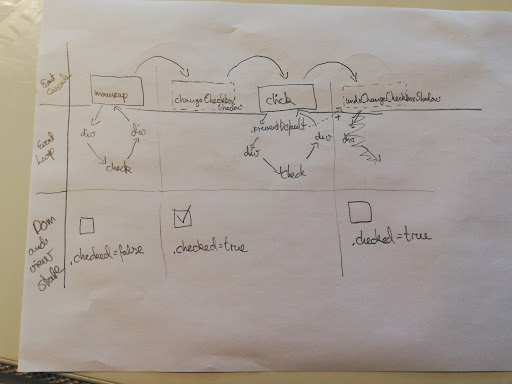 Event
Cascade
mouseup
changeCheckbox
Shadow
click
undoChangeCheckboxShadow
Event
Loop
div
div
check
.preventDefault
div
div
check
+
div
Dom
and
view
state
.checked=false
.checked=true
.checked=true